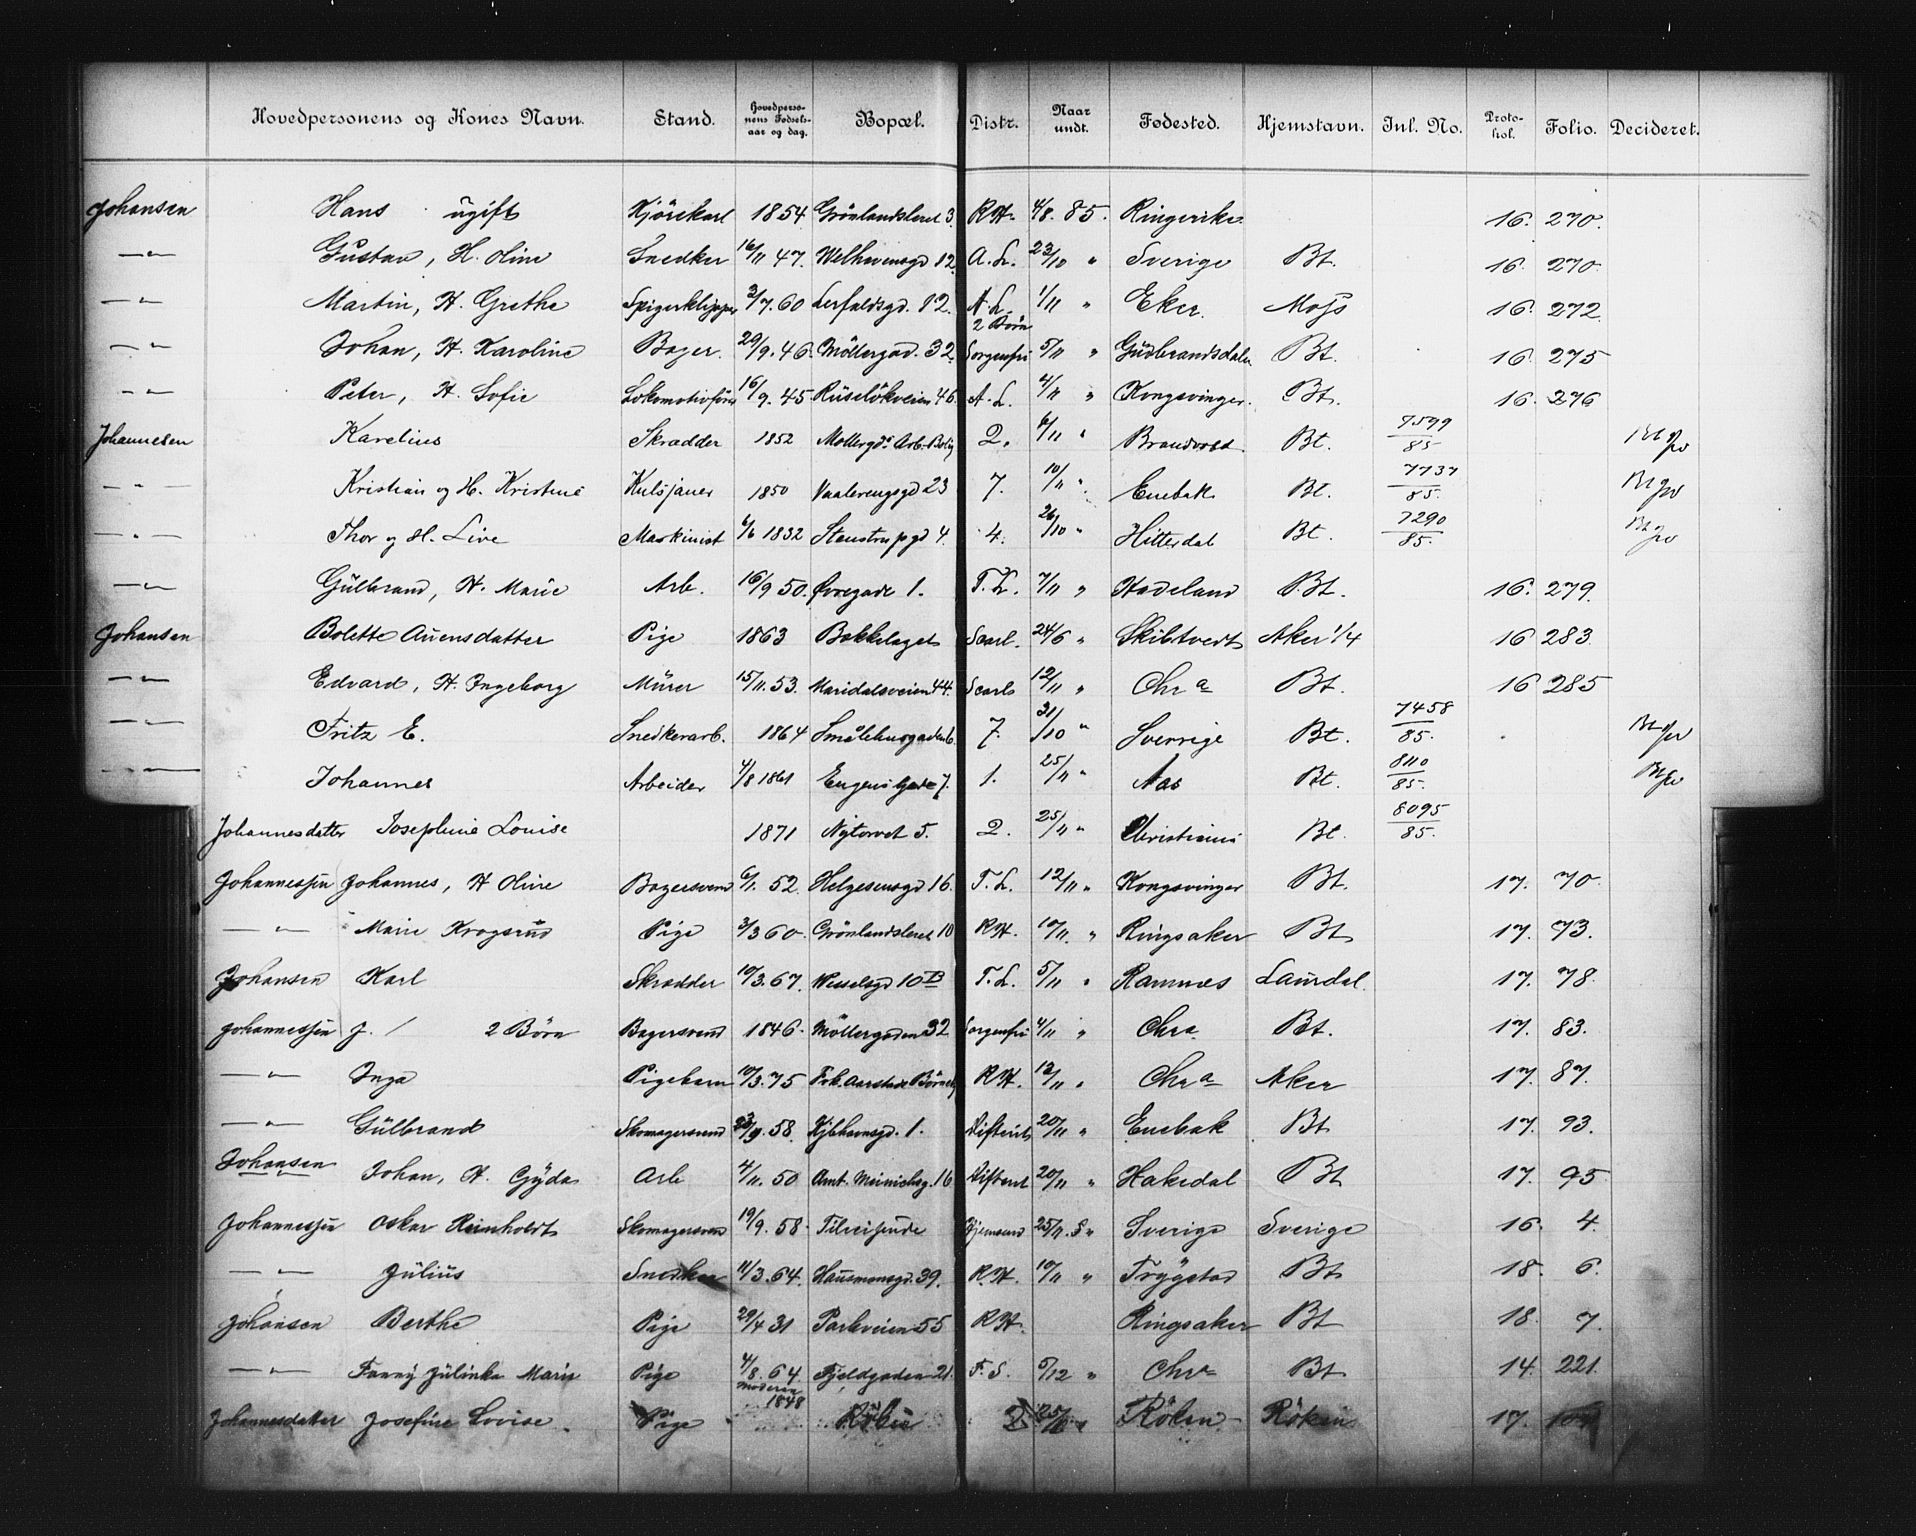 Hovedpersonens og Kones Navn. Stand. Hovedpersonens Fødselsaar og dag. Bopæl. Distr. Naar undt. Fødested. Hjemstavn. Jnl. No. Protokol. Folio. Decideret.
Johansen Hans ugift Kjörekarl 1854 Grönlandsleret 3. R.H. 4/8. 85. Ringerike 16. 270.
—"— Gustav, H. Oline Snedker 16/11 47. Welhavensgd 12. A.L. 23/10 " Sverige Bt. 16. 270.
—"— Martin, H. Grethe Spigerklipper 3/7. 60 Lerfaldsgd. 12. A.L. 1/11 " Eker. Moss 16. 272.
—"— Johan, H. Karoline Bager. 29/9. 46. Möllergad. 32. 2 Börn Sorgenfri 5/11 " Gudbrandsdalen Bt. 16. 275
—"— Peter, H. Sofie Lokomotivförer 16/9. 45 Ruselökveien 46. A.L. 4/11 " Kongsvinger. Bt. 16. 276
Johannesen Karelius Skradder 1852 Mollergds Arb. Bolig 2. 6/11 " Brandvold Bt. 7599/85
—"— Kristian og H. Kristine Kulsjauer 1850 Vaalerengsgd 23 7. 10/11 " Enebak Bt. 7737/85.
—"— Thor og H. Live Maskinist 6/6 1832 Stenstrupgd 4. 4. 26/10 " Hitterdal Bt. 7290/85.
—"— Gulbrand, H. Marie Arb. 16/9 50. Øvregade 1. T.L. 7/11 " Hadeland Bt. 16. 279.
Johansen Bolette Auensdatter Pige 1863 Bakkelaget Scarl. 24/6 " Skibtvedt Aker 1/4 16 283.
—"— Edvard, H. Ingeborg Murer 15/11. 53. Maridalsveien 44. Scarls 12/11 " Chra Bt. 16 285
—"— Fritz E. Snedkerarb. 1864 Smålensgaden 6. 7. 31/10 " Sverrige Bt. 7458/85.
—"— Johannes Arbeider 4/8 1861 Eugenis Gade 7. 1. 25/11 " Aas Bt. 8110/85.
Johannesdatter Josephine Louise 1871 Nytorvet 5. 2. 25/11 " Christiania Bt. 8095/85.
Johannessen Johannes, H Oline Bagersvend 6/1. 52. Helgesensgd 16. T.L. 12/11 " Kongsvinger Bt. 17. 70.
—"— Marie Krogsrud Pige 3/3 60. Grönlandsleret 10 R.H. 10/11. " Ringsaker Bt 17. 73.
Johansen Karl Skradder 10/3. 67. Wesselsgd 10 B T.L. 5/11 " Ramnes Laurdal. 17. 78.
Johannessen J. / 2 Börn Bagersvend 1846. Möllergaden 32 Sorgenfri 4/11 " Chra Bt. 17. 83.
—"— Inga Pigebarn 10/3. 75 Frk. Aarstads Börnehj. R.H. 12/11 " Chra Aker 17. 87.
—"— Gulbrand Skomagersvend 23/9. 58. Kjbhavnsgd. 1. Difterit 20/11 " Enebak Bt 17. 93.
Johansen Johan, H. Gyda Arb 4/11. 50 Amt. Meinichsg. 16 Difterit 20/11 " Hakedal Bt 17. 95.
Johannessen Oskar Reinholdt Skomagersvend 19/9. 58. Tilreisende Hjemsend 25/11. 8 " Sverige Sverige 16. 4.
—"— Julius Snedker 11/3. 64. Hausmansgd. 39. R.H. 10/11 " Trygstad Bt 18. 6.
Johansen Berthe Pige 29/4 31 Parkveien 55 R.H. Ringsaker Bt 18. 7.
—"— Fanny Julinka Marie Pige 4/8. 64. Fjeldgaden 21. F.S. 5/12 " Chra Bt 14. 221.
Johannesdatter Josefine Lovise. Pige Moderen 1848 Röken 2 25/11 " Röken Röken 17.